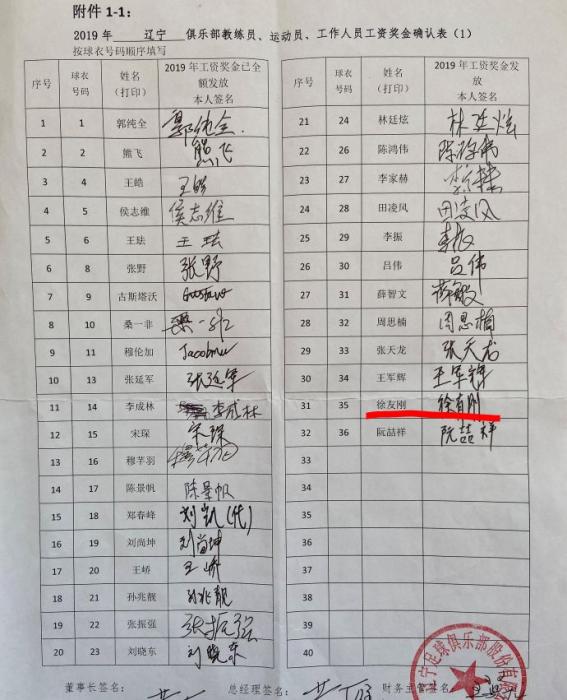 附件 1-1：
2019 年 辽宁 俱乐部教练员、运动员、工作人员工资奖金确认表（1）
按球衣号码顺序填写
序号 球衣号码 姓名（打印） 2019 年工资奖金已全额发放 本人签名
1 1 郭纯全 郭纯全
2 2 熊飞 熊飞
3 4 王皓 王皓
4 5 侯志维 侯志维
5 6 王珐 王珐
6 8 张野 张野
7 9 古斯塔沃 Gustavo
8 10 桑一非 桑一非
9 11 穆伦加 Jacob
10 13 张延军 张延军
11 14 李成林 李成林
12 15 宋琛 宋琛
13 16 穆芊羽
14 17 陈景帆 陈景帆
15 18 郑春峰 刘凯(代)
16 19 刘尚坤 刘尚坤
17 20 王峤 王峤
18 21 孙兆靓 孙兆靓
19 22 张振强 张振强
20 23 刘晓东 刘晓东
序号 球衣号码 姓名（打印） 2019 年工资奖金发放 本人签名
21 24 林廷炫 林廷炫
22 26 陈鸿伟 陈鸿伟
23 27 李家赫
24 28 田凌风 田凌风
25 29 李振 李振
26 30 吕伟 吕伟
27 31 薛智文
28 32 周思楠 周思楠
29 33 张天龙 张天龙
30 34 王军辉 王军辉
31 35 徐友刚 徐有刚
32 36 阮喆祥 阮喆祥
33
34
35
36
37
38
39
40
董事长签名： 总经理签名： 财务主管签名：
宁足球俱乐部股份有